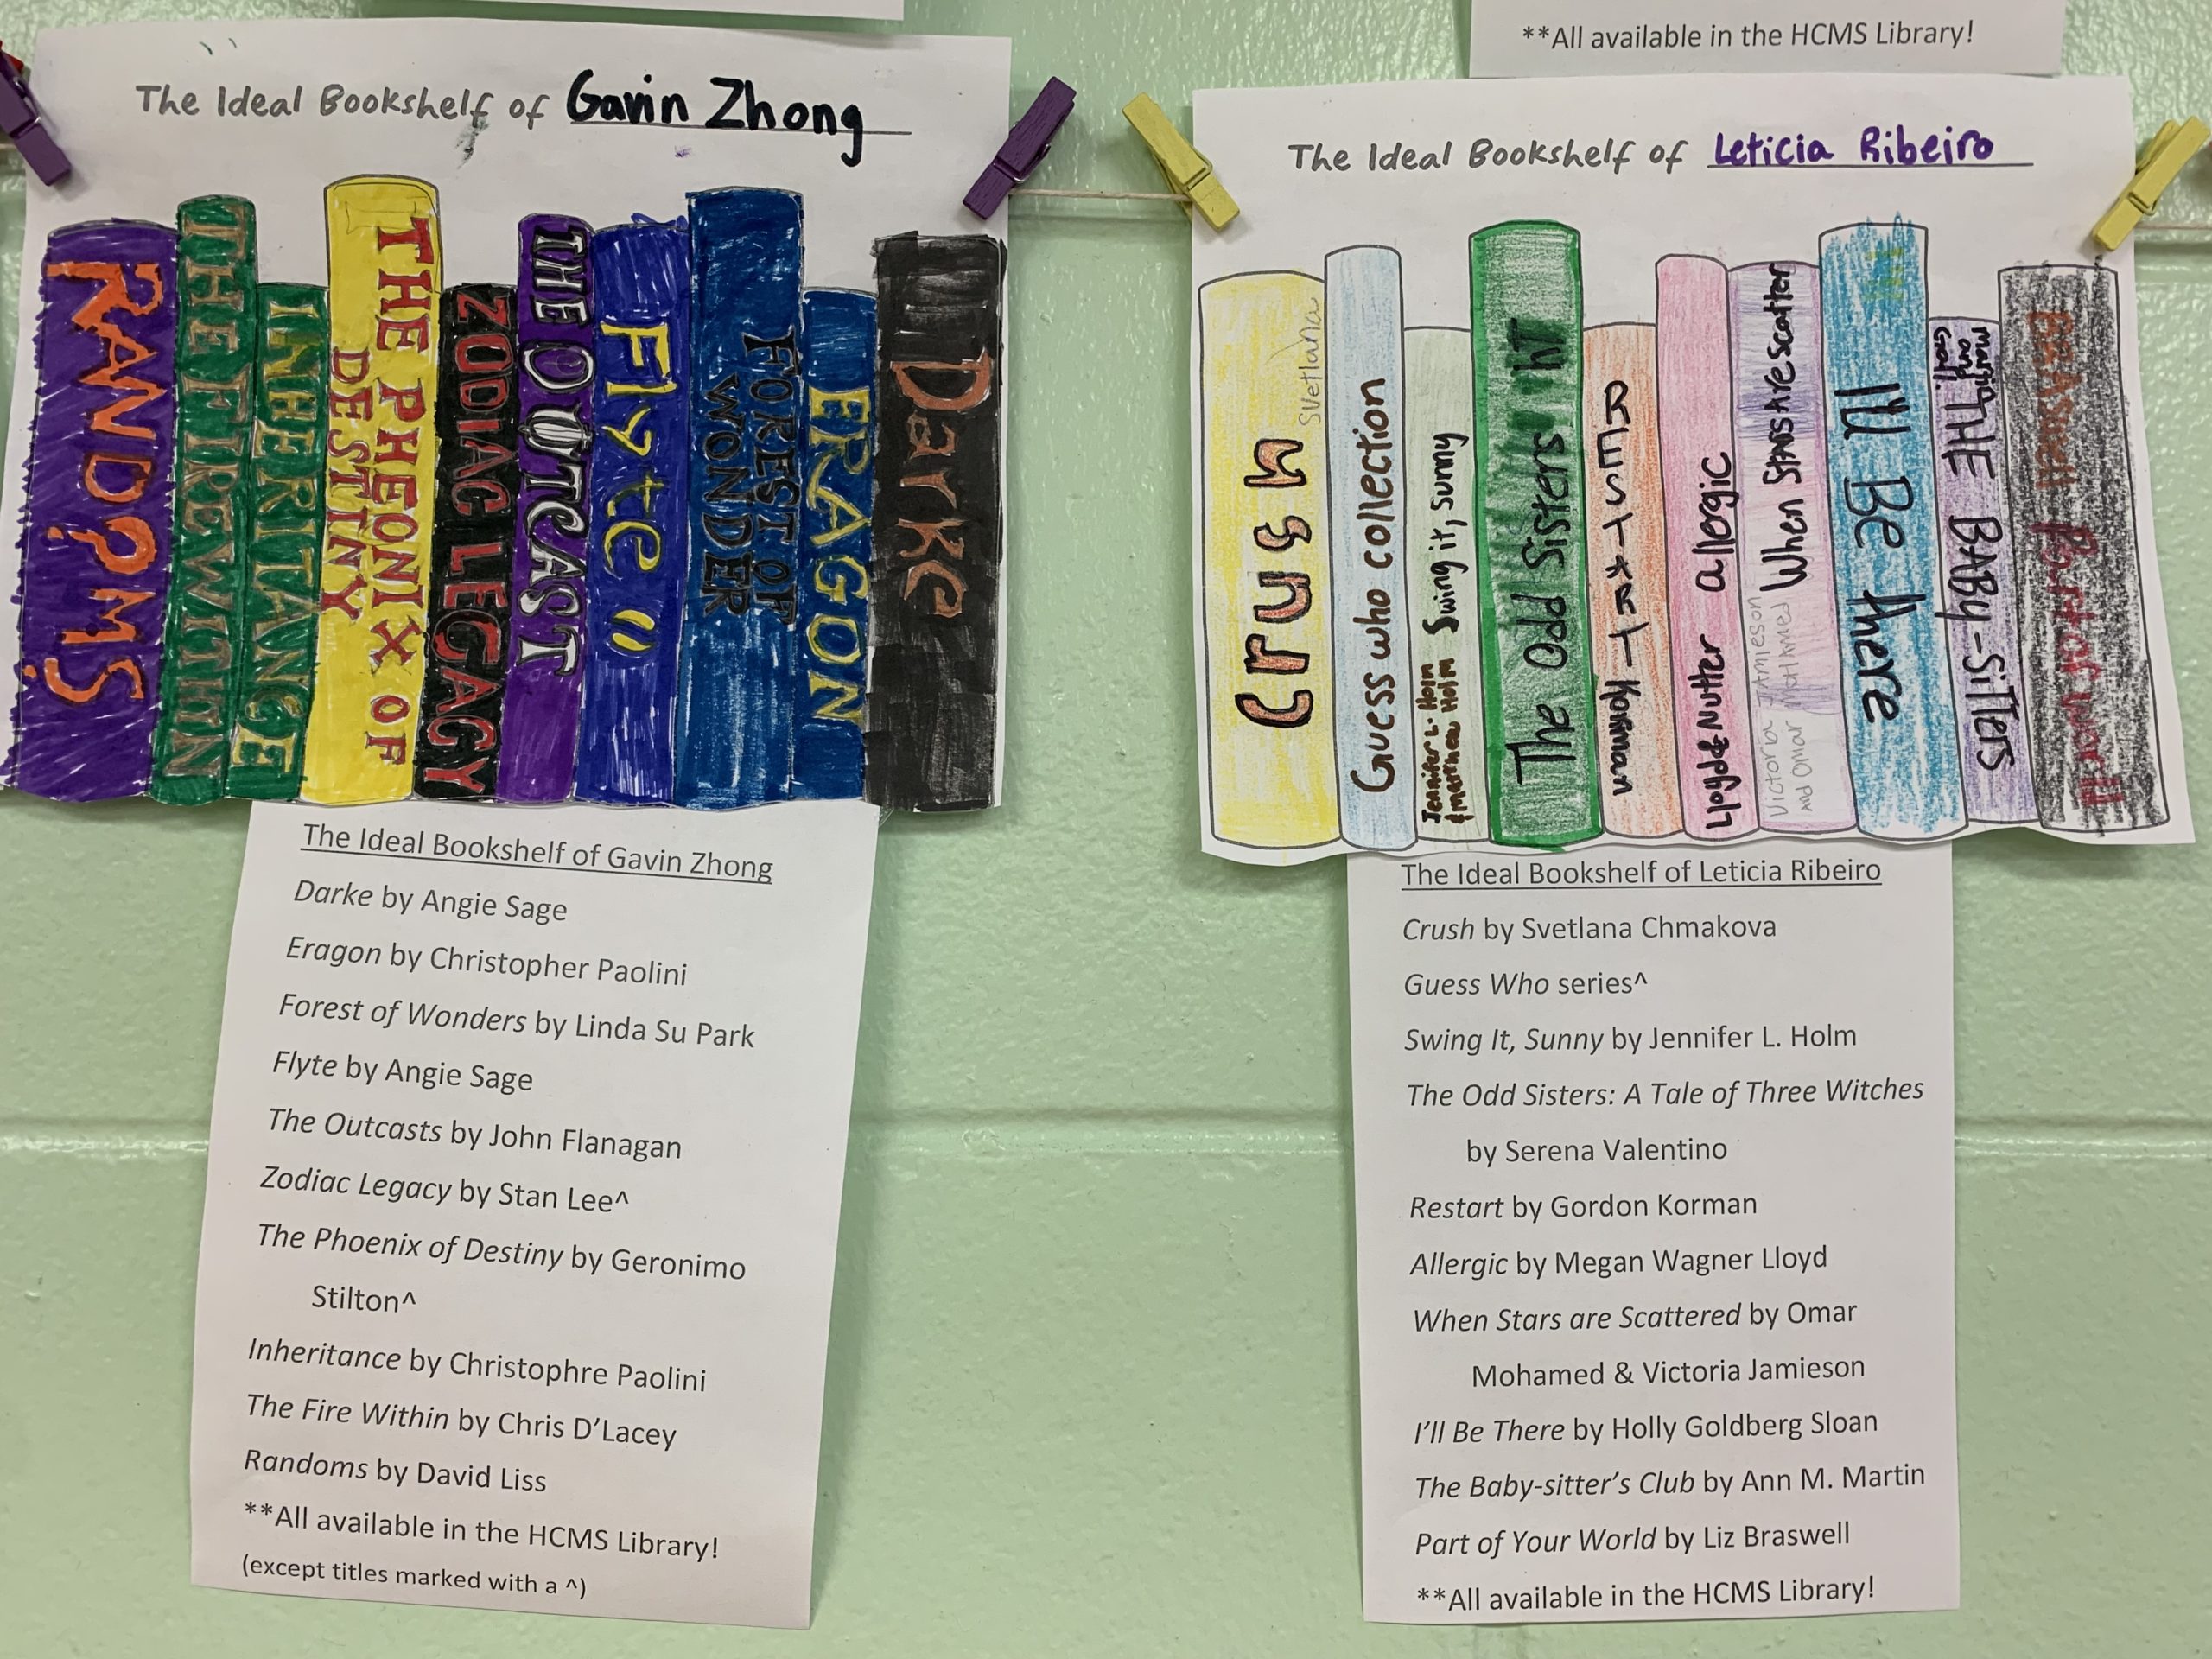 **All available in the HCMS Library!
The Ideal Bookshelf of Gavin Zhong
RANDOMS
THE FIRE WITHIN
INHERITANCE
THE PHEONIX OF
DESTINY
ZODIAC LEGACY
THE OUTCAST
Flyte "
FOREST OF
WONDER
ERAGON
Darke
The Ideal Bookshelf of Gavin Zhong
Darke by Angie Sage
Eragon by Christopher Paolini
Forest of Wonders by Linda Su Park
Flyte by Angie Sage
The Outcasts by John Flanagan
Zodiac Legacy by Stan Lee^
The Phoenix of Destiny by Geronimo
Stilton^
Inheritance by Christophre Paolini
The Fire Within by Chris D'Lacey
Randoms by David Liss
**All available in the HCMS Library!
(except titles marked with a ^)
The Ideal Bookshelf of Leticia Ribeiro
Crush
Svetlana
Guess who collection
Jennifer L. Holm
& Matthew Holm
Swing it, sunny
The Odd Sisters
REStARt Korman
Lloyd & Nutter allergic
Victoria JAMIESON
AND Omar MOHAMED
When STARS Are Scatter
I'll Be there
THE BABy-SiTers
BRASWell Part of wor
The Ideal Bookshelf of Leticia Ribeiro
Crush by Svetlana Chmakova
Guess Who series^
Swing It, Sunny by Jennifer L. Holm
The Odd Sisters: A Tale of Three Witches
by Serena Valentino
Restart by Gordon Korman
Allergic by Megan Wagner Lloyd
When Stars are Scattered by Omar
Mohamed & Victoria Jamieson
I'll Be There by Holly Goldberg Sloan
The Baby-sitter's Club by Ann M. Martin
Part of Your World by Liz Braswell
**All available in the HCMS Library!